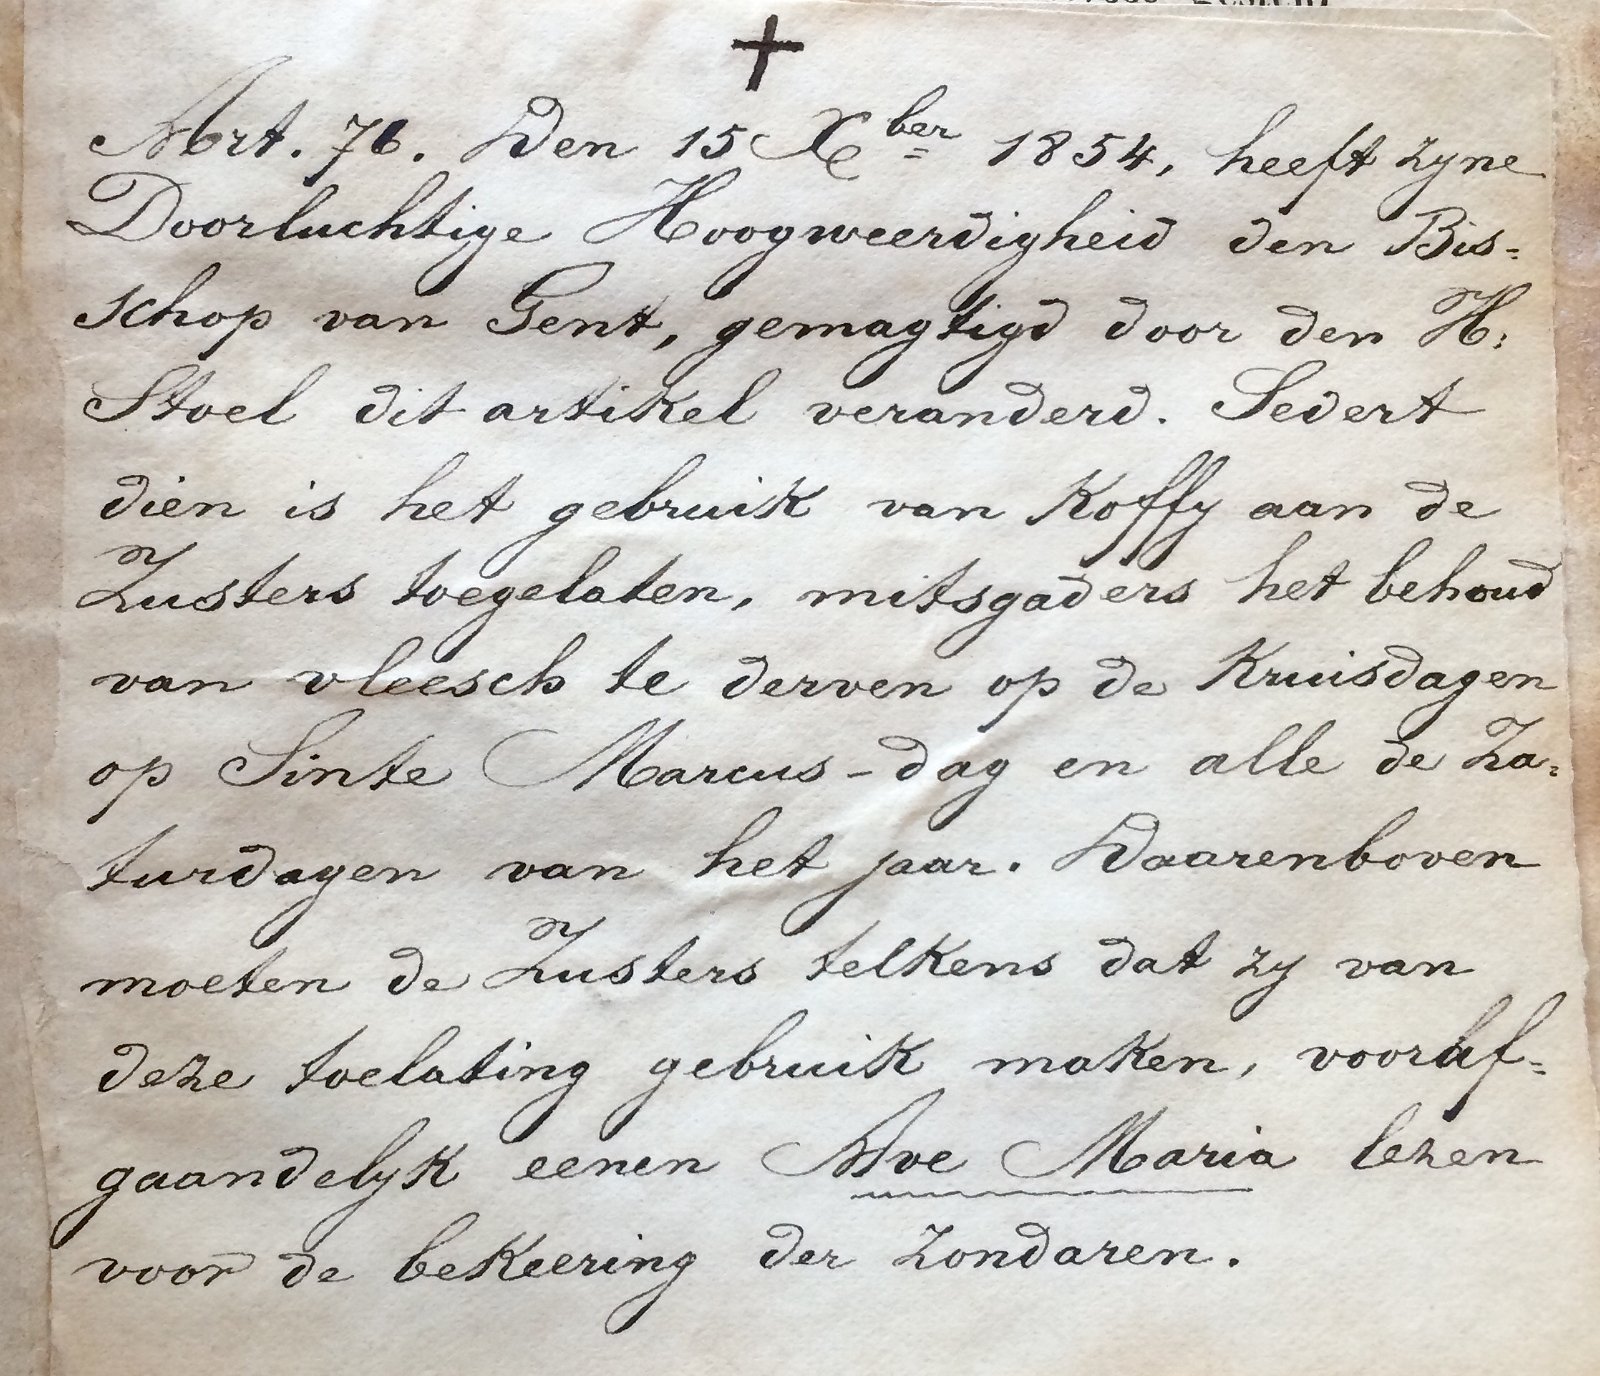 Art. 76. Den 15 Xber 1854, heeft zyne
Doorluchtige Hoogweerdigheid den Bis=
schop van Gent, gemagtigd door den H:
Stoel dit artikel veranderd. Sedert
dien is het gebruik van Koffy aan de
Zusters toegelaten, mitsgaders het behoud
van vleesch te derven op de Kruisdagen
op Sinte Marcus-dag en alle de Za=
turdagen van het jaar. Daarenboven
moeten de Zusters telkens dat zy van
deze toelating gebruik maken, vooraf=
gaandelyk eenen Ave Maria lezen
voor de bekeering der zondaren.